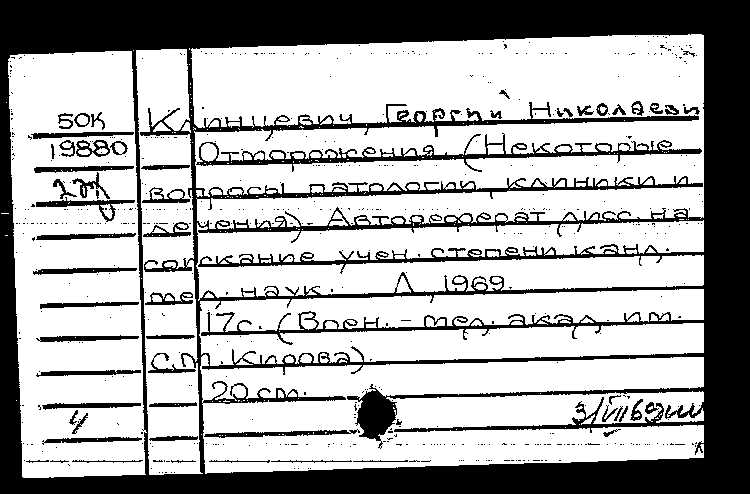 50К Клинцевич, Георгий Николаеви
19880 Отморожения. (Некоторые
вопросы патологии, клиники и
лечения). Автореферат дисс. на
соискание учен. степени канд.
мед. наук. Л., 1969.
17с. (Воен. - мед. акад. им.
С.М. Кирова).
20 см.
4 3/VII69